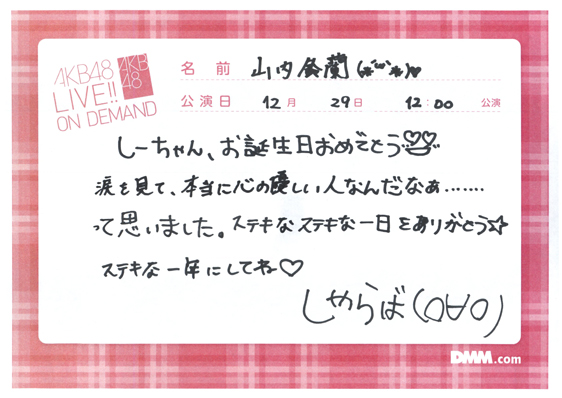 AKB48
LIVE!!
ON DEMAND
AKB
48
名 前 山内鈴蘭(*´˘`*)♥
公演日 12月 29日 12:00 公演
しーちゃん、お誕生日おめでとう♡♡
涙を見て、本当に心の優しい人なんだなぁ.......
って思いました。ステキなステキな一日をありがとう☆
ステキな一年にしてね♡
しゃらば(O∀O)
DMM.com